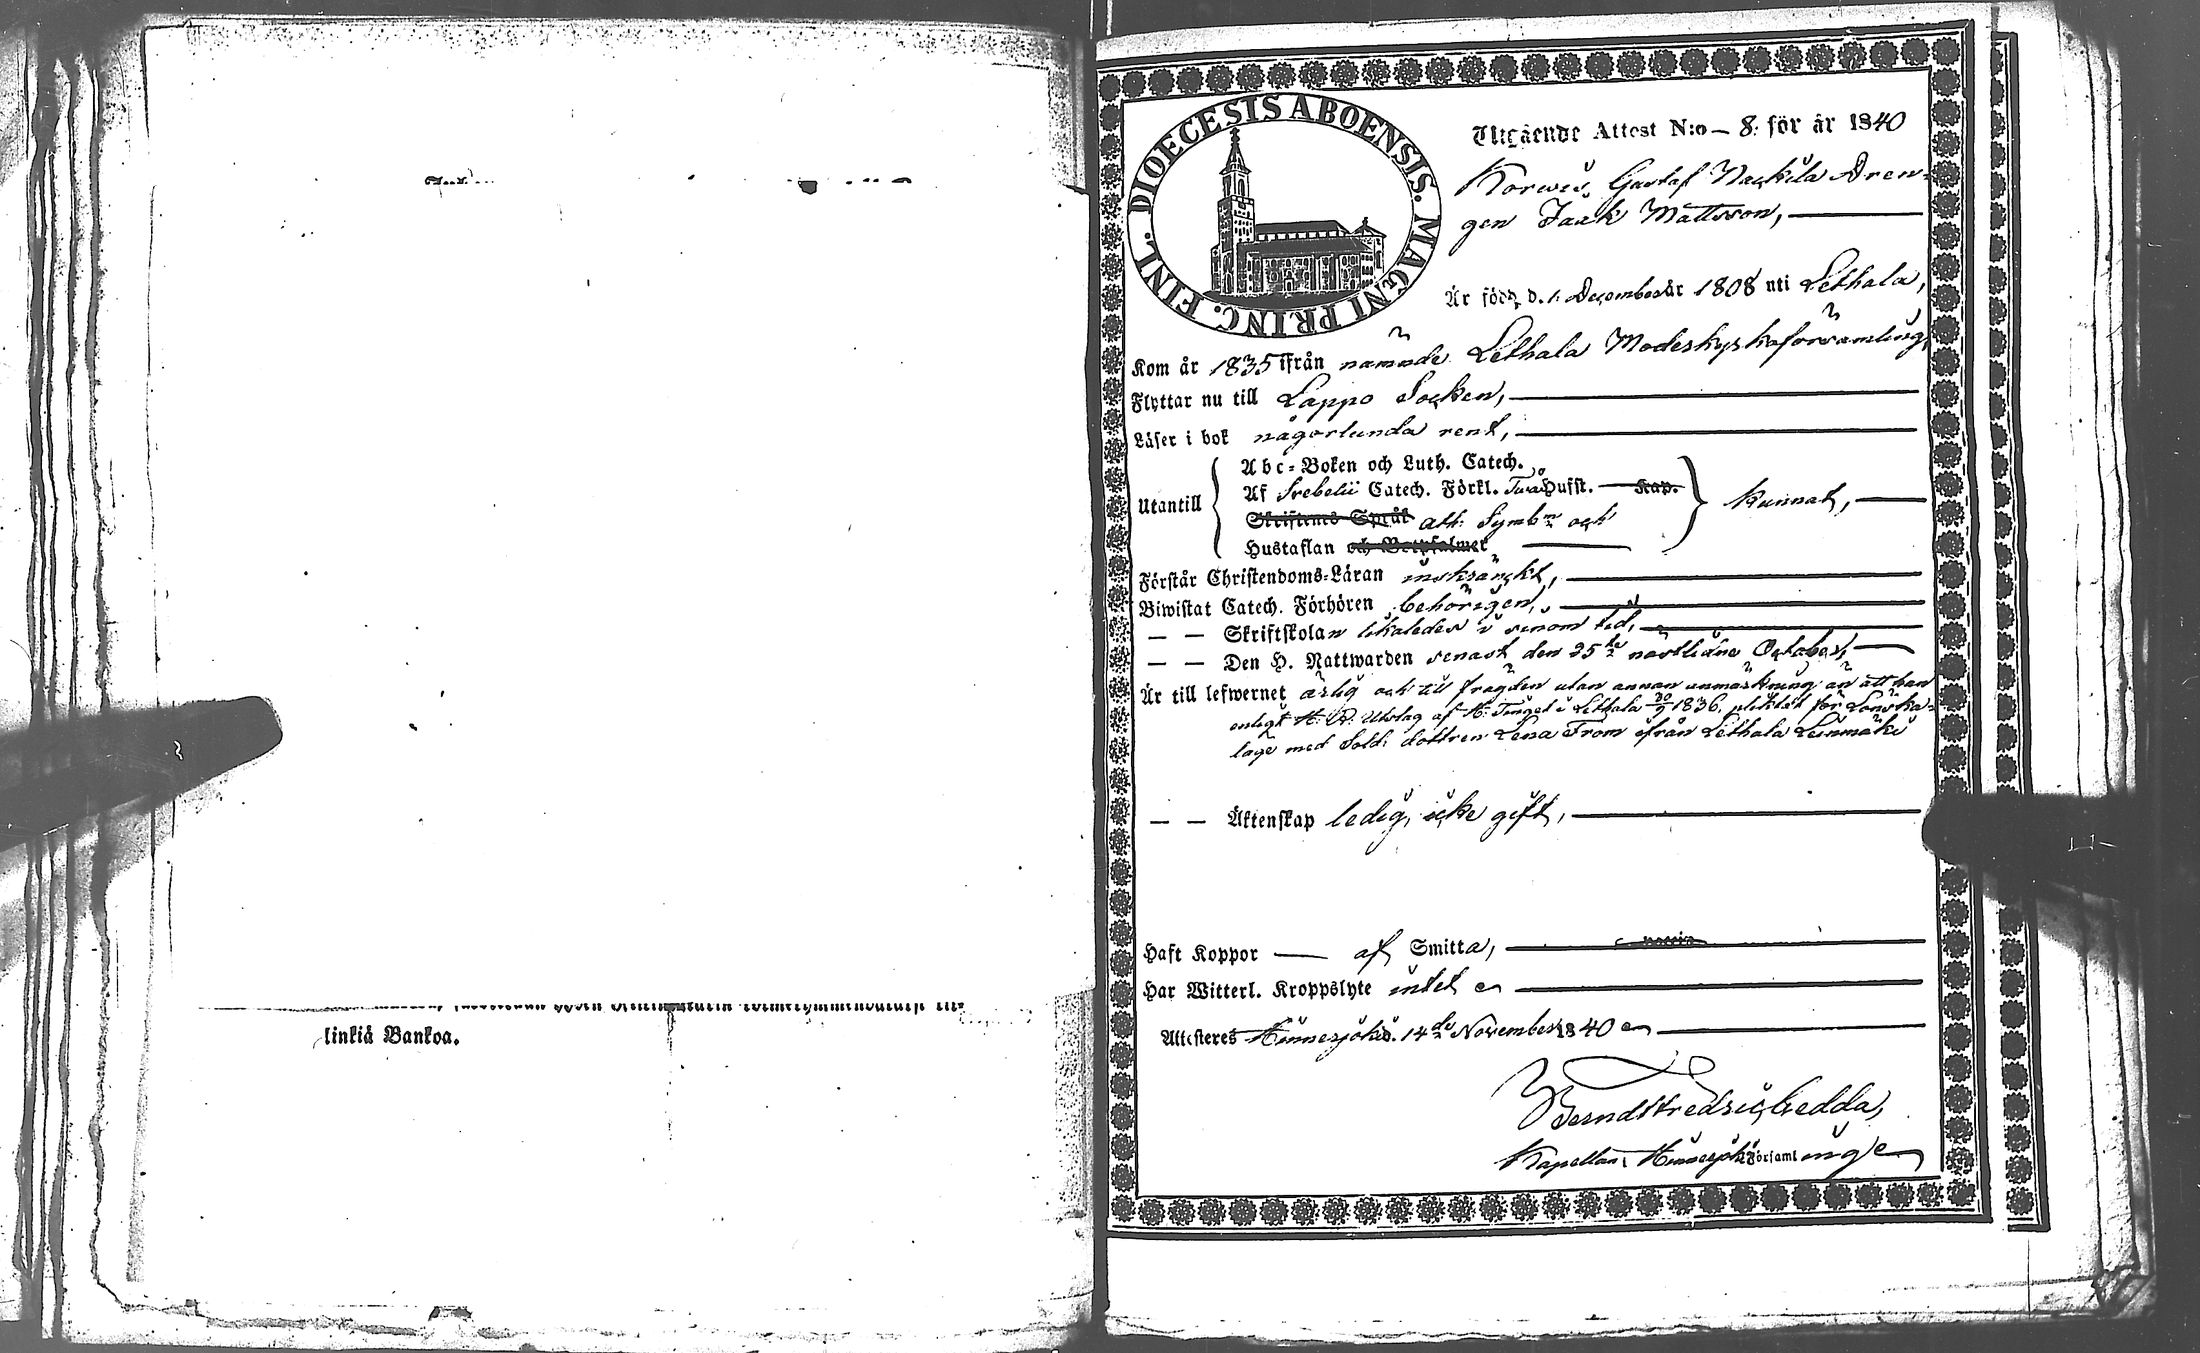 linkiä Bankoa.
DIOECESIS ABOENSIS. MAGNI PRINC. FINL.
Utgående Attest N:o – 8. för år 1840
Korwis, Gustaf Nackila Dren-
gen Isak Mattsson,
Är född d. 1. December år 1808 uti Lethala,
Kom år 1835 ifrån nämnde Lethala Moderkyrkoförsamling,
Flyttar nu till Lappo Socken,
Läser i bok någorlunda rent,
Utantill
Abc-Boken och Luth. Catech.
Af Svebelii Catech. Förkl. Twå Hufst. Kap.
Skriftenes Språk Ath. Symb. och
Hustaflan och Botpsalmer
kunnat,
Förstår Christendoms-Läran inskränkt,
Biwistat Catech. Förhören behörigen,
— — Skriftskolan likaledes i sinom tid,
— — Den H. Nattwarden senast den 25te nästlidne October,
Är till lefwernet ärlig och till frägden utan annan anmärkning än att han
enligt H. R. Utslag af H. Tinget i Lethala 20/9 1836, pliktat för Lönska-
läge med Sold. dottren Lena From ifrån Lethala Leinmäki
— — Äktenskap ledig, icke gift,
Haft Koppor — af Smitta,
Har Witterl. Kroppslyte intet
Attesteres Hinnerjoki d. 14de November 1840
Berndt Fredric Gedda,
Kapellan i Hinnerjoki Församlinge